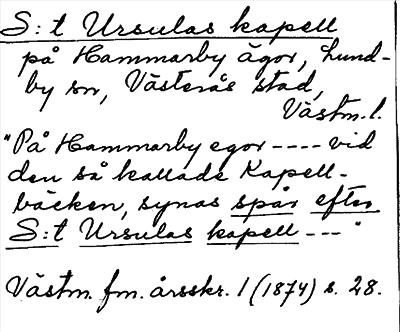 S:t Ursulas kapell
på Hammarby ägor, Lund-
by sn, Västerås stad,
Västm.l.
"På Hammarby egor ---- vid
den så kallade Kapell-
bäcken, synas spår efter
S:t Ursulas kapell ---"
Västm. fm. årsskr. 1 (1874) s. 28.